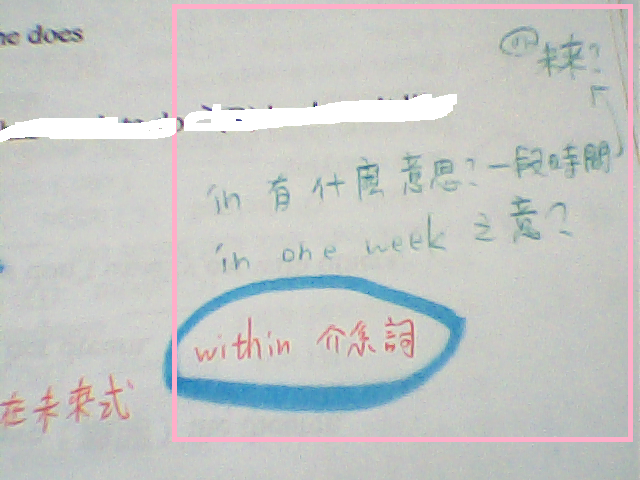 he does
未来?
in 有什麼意思?一段時間
in one week 之意?
within 介系詞
在未來式